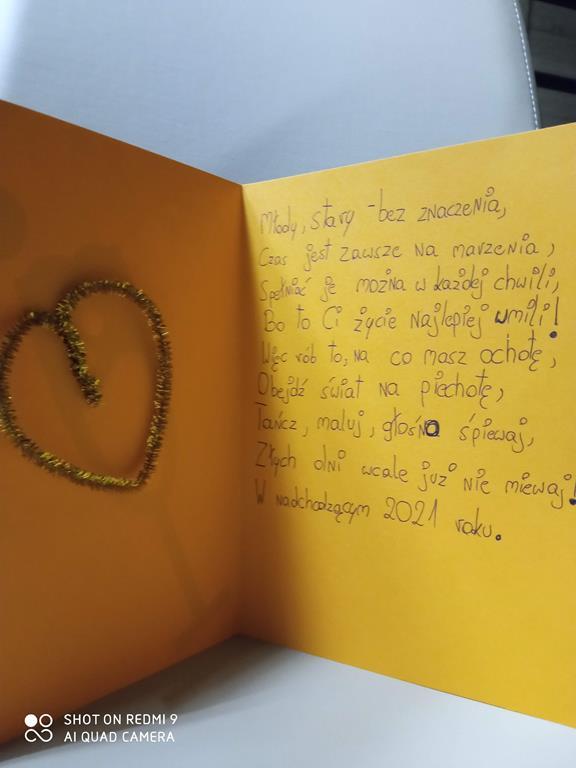 Młody, stary - bez znaczenia,
Czas jest zawsze na marzenia,
Spełniać je można w każdej chwili,
Bo to Ci życie najlepiej umili!
Więc rób to, na co masz ochotę,
Obejdź świat na piechotę,
Tańcz, maluj, głośno śpiewaj,
Złych dni wcale już nie miewaj!
W nadchodzącym 2021 roku.
SHOT ON REDMI 9
AI QUAD CAMERA